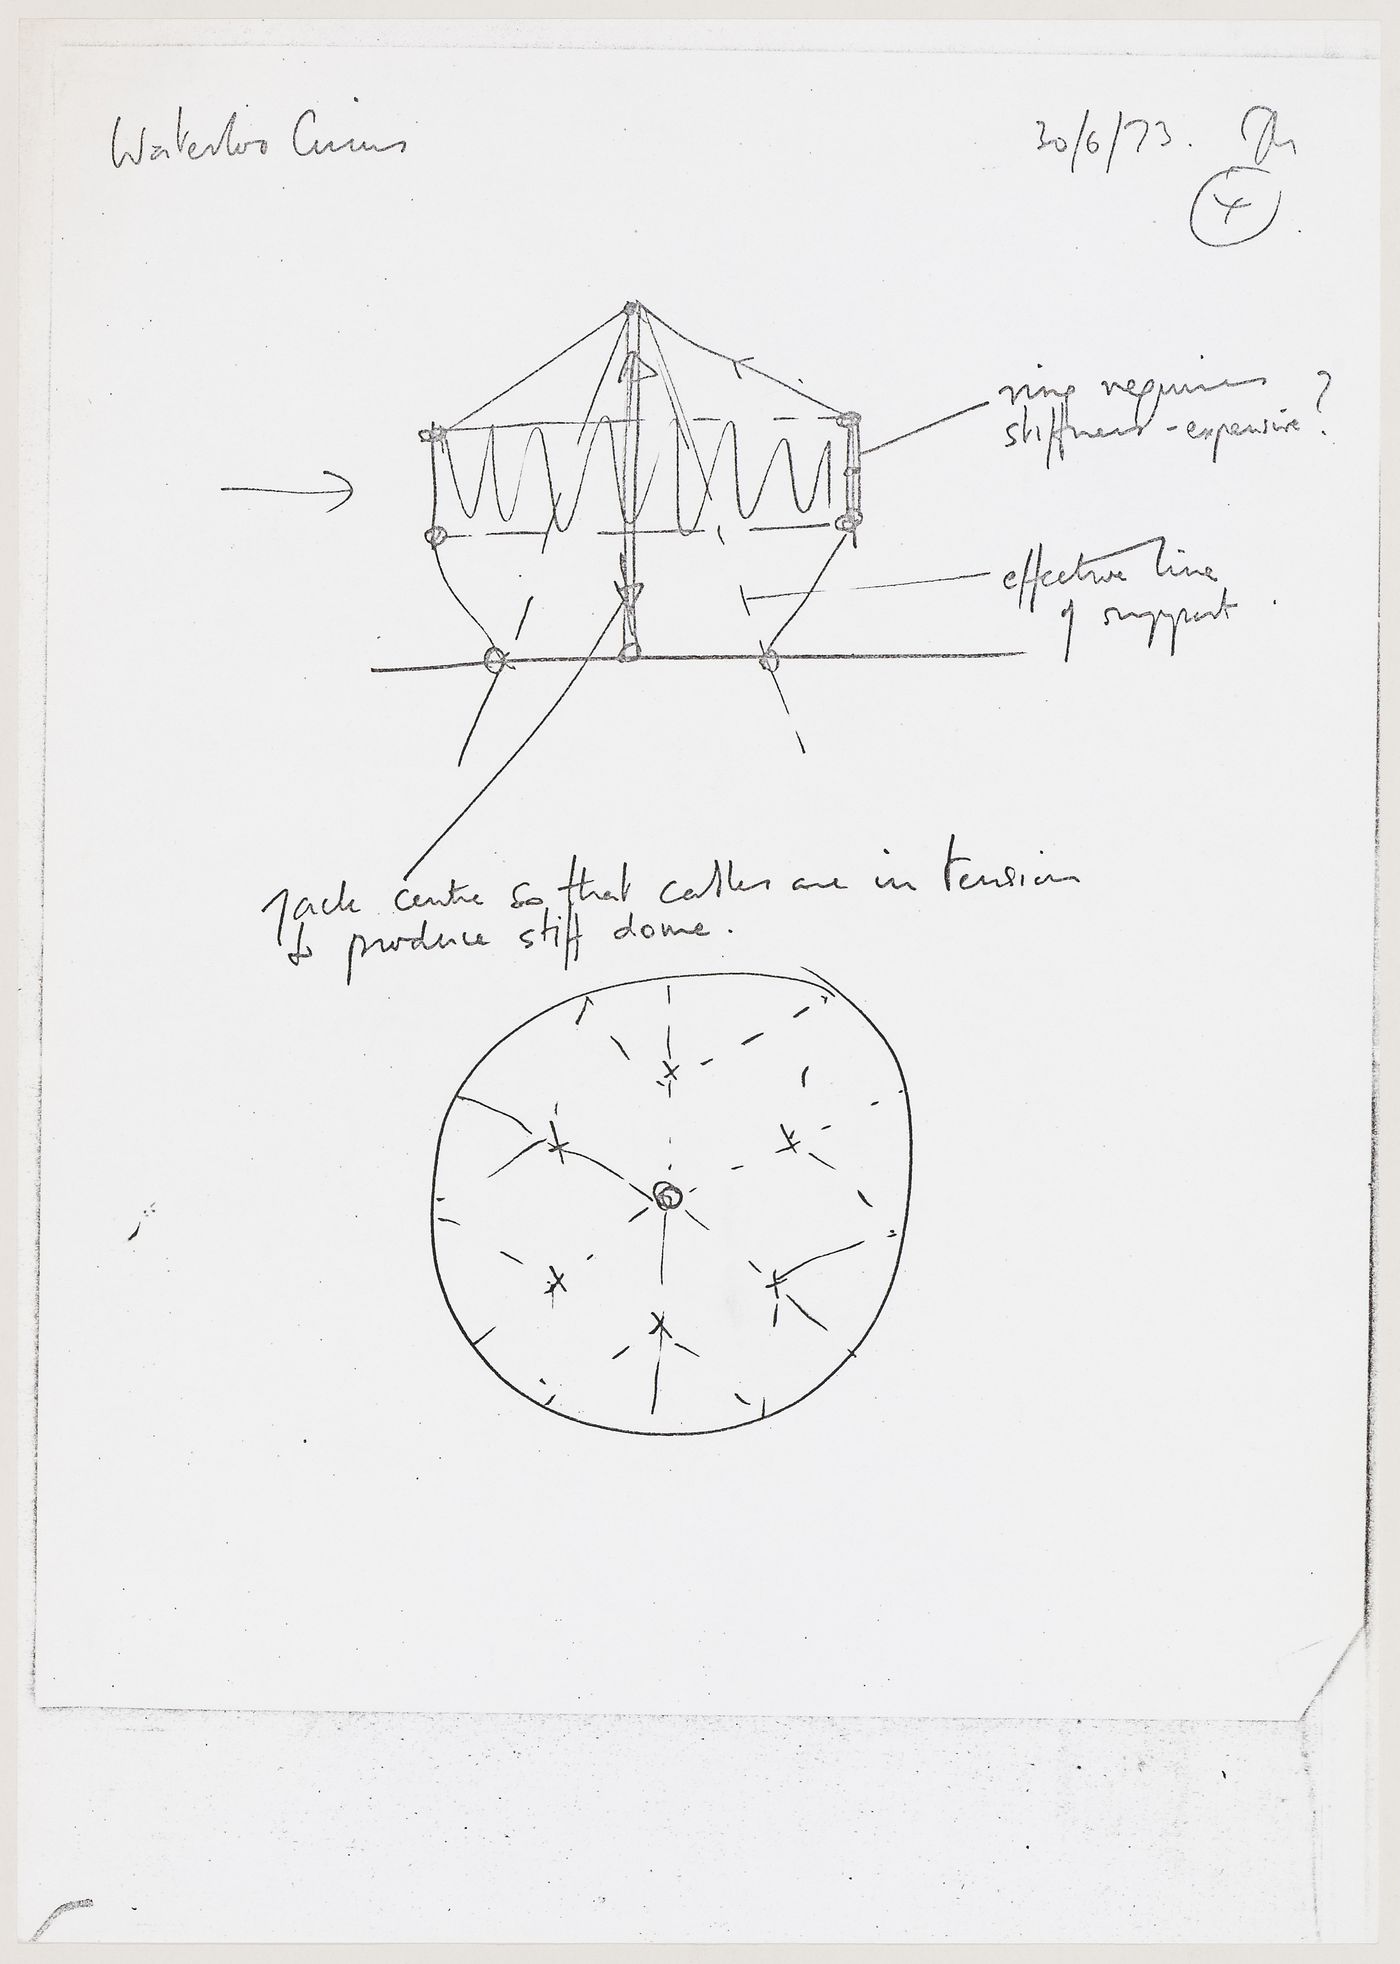 Waterloo Circus
30/6/73.
4
ring requires
stiffness - expensive ?
effective line
of support.
Jack centre so that cables are in tension
to produce stiff dome.